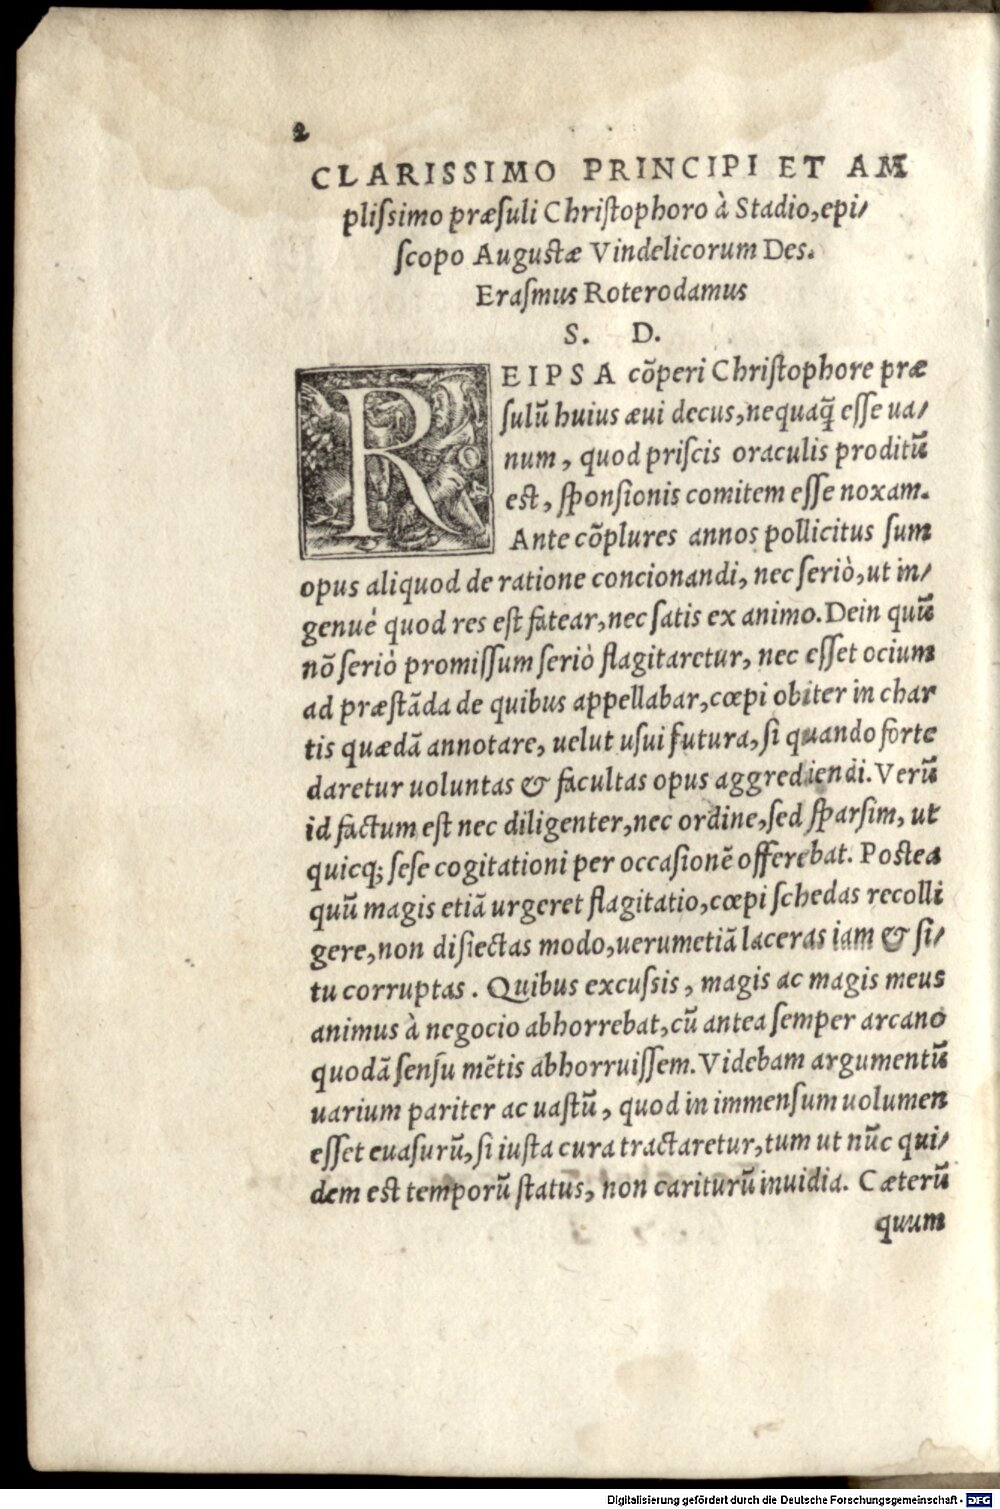 2
CLARISSIMO PRINCIPI ET AM
pliſsimo præſuli Chriſtophoro à Stadio, epi-
ſcopo Auguſtæ Vindelicorum Des.
Eraſmus Roterodamus
S. D.
REIPSA cõperi Chriſtophore præ
ſulũ huius æui decus, nequaq̃ eſſe ua-
num, quod priſcis oraculis proditũ
eſt, ſponſionis comitem eſſe noxam.
Ante cõplures annos pollicitus ſum
opus aliquod de ratione concionandi, nec ſeriò, ut in-
genuè quod res eſt fatear, nec ſatis ex animo. Dein quũ
nõ ſeriò promiſſum ſeriò flagitaretur, nec eſſet ocium
ad præſtãda de quibus appellabar, cœpi obiter in char
tis quædã annotare, uelut uſui futura, ſi quando forte
daretur uoluntas & facultas opus aggrediendi. Verũ
id factum eſt nec diligenter, nec ordine, ſed ſparſim, ut
quicq; ſeſe cogitationi per occaſionẽ offerebat. Poſtea
quũ magis etiã urgeret flagitatio, cœpi ſchedas recolli
gere, non diſiectas modo, uerumetiã laceras iam & ſi-
tu corruptas. Quibus excuſsis, magis ac magis meus
animus à negocio abhorrebat, cũ antea ſemper arcano
quodã ſenſu mẽtis abhorruiſſem. Videbam argumentũ
uarium pariter ac uaſtũ, quod in immenſum uolumen
eſſet euaſurũ, ſi iuſta cura tractaretur, tum ut nũc qui-
dem eſt temporũ ſtatus, non cariturũ inuidia. Cæterũ
quum
Digitalisierung gefördert durch die Deutsche Forschungsgemeinschaft - DFG